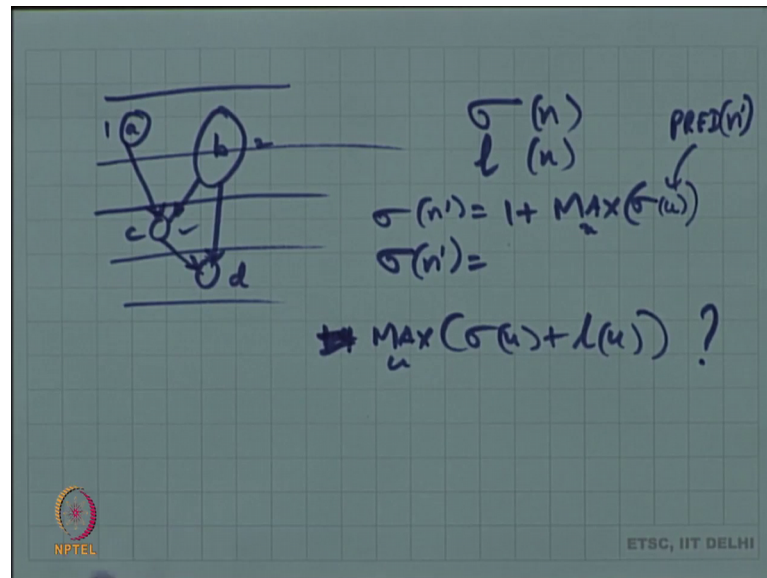 1 a
b 2
c
d
σ(n)
l(n)
PRED(n')
σ(n') = 1 + MAX(σ(u))
u
σ(n') =
MAX(σ(u) + l(u)) ?
u
NPTEL
ETSC, IIT DELHI